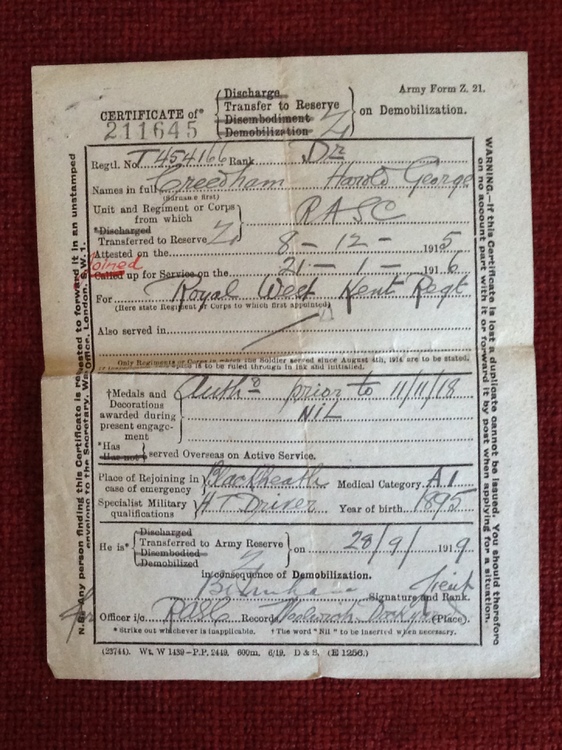 Army Form Z. 21.
CERTIFICATE of* Discharge Transfer to Reserve Disembodiment Demobilization Z on Demobilization.
211645
Regtl. No. T454166 Rank Dr
Names in full Creedham Harold George
(Surname first)
Unit and Regiment or Corps from which RASC
*Discharged
Transferred to Reserve Z
Attested on the 8 - 12 - 1915
Joined
Called up for Service on the 21 - 1 - 1916
For Royal West Kent Regt
(Here state Regiment or Corps to which first appointed)
Also served in
Only Regiments or Corps in which the Soldier served since August 4th, 1914 are to be stated.
is to be ruled through in ink and initialled.
†Medals and Decorations awarded during present engagement
Auth^d prior to 11/11/18
NIL
*Has
Has not
served Overseas on Active Service.
Place of Rejoining in case of emergency Blackheath Medical Category A1
Specialist Military qualifications HT Driver Year of birth 1895
He is* Discharged Transferred to Army Reserve Disembodied Demobilized Z on 28/9/1919
in consequence of Demobilization.
Signature and Rank.
Officer i/c RASC Records Woolwich Dockyard (Place).
* Strike out whichever is inapplicable. † The word "Nil" to be inserted when necessary.
(23744). Wt. W 1439—P.P. 2449. 600m. 6/19. D & S. (E 1256.)
N.B. Any person finding this Certificate is requested to forward it in an unstamped
envelope to the Secretary, War Office, London, S.W. 1.
WARNING.—If this Certificate is lost a duplicate cannot be issued. You should therefore
on no account part with it or forward it by post when applying for a situation.